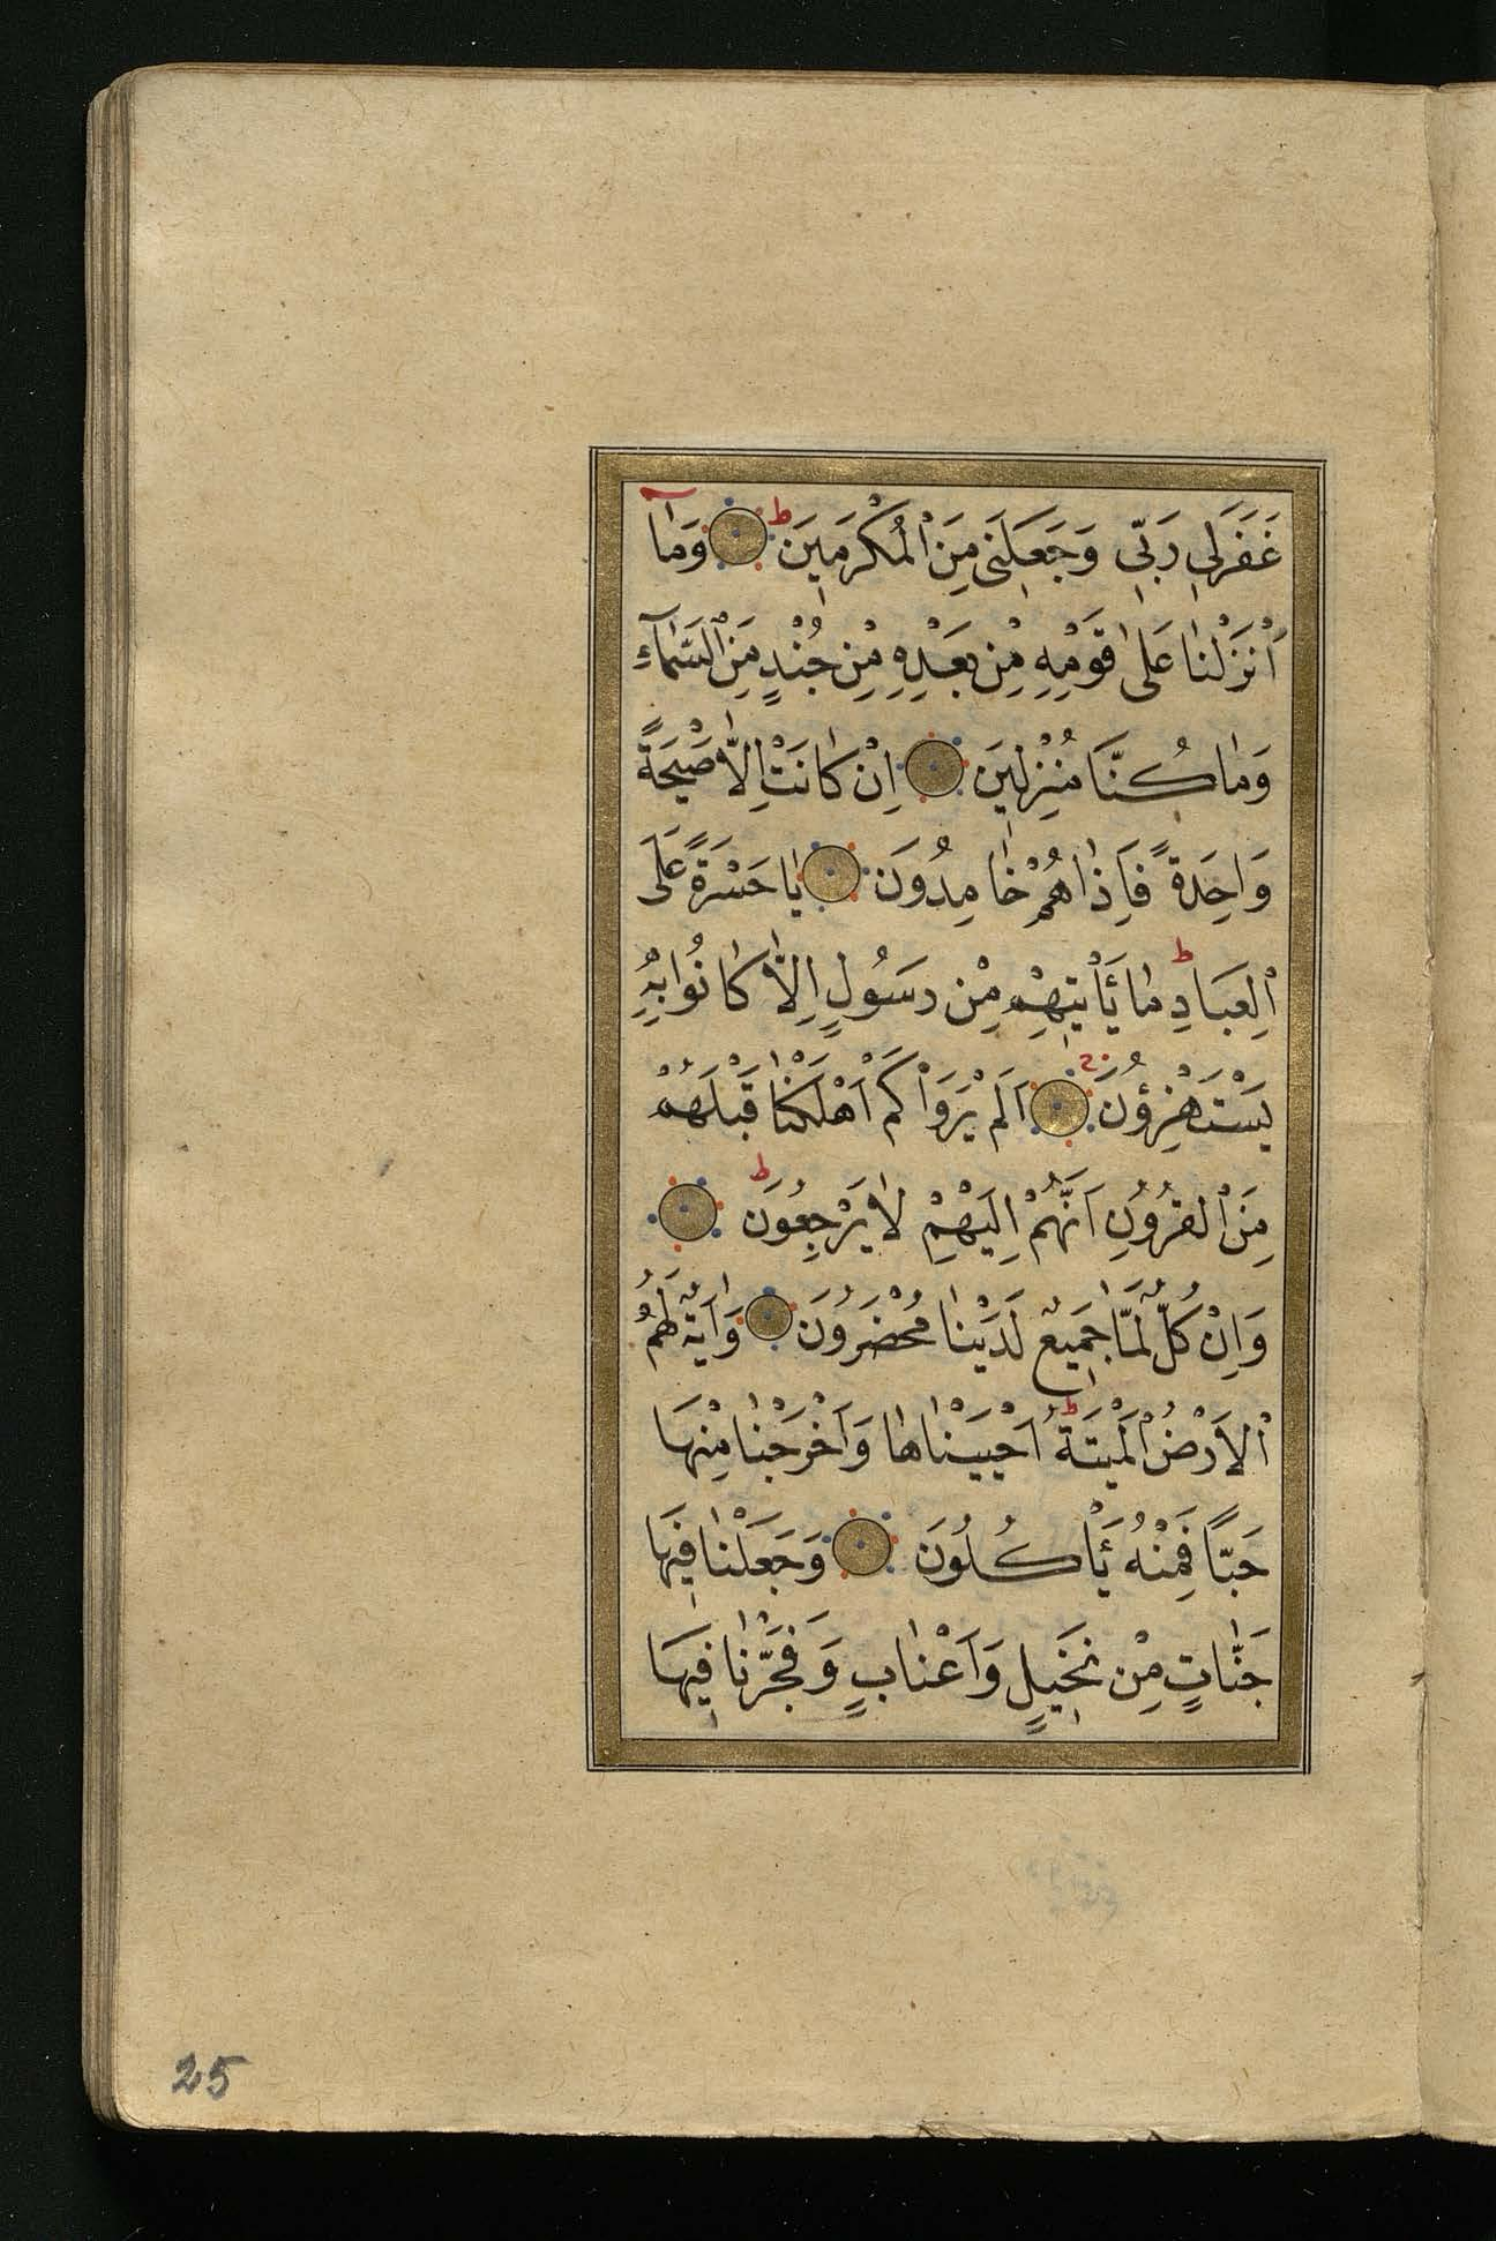 غَفَرَلِي رَبِّي وَجَعَلَنِي مِنَ الْمُكْرَمِينَ ط وَمَآ
أَنْزَلْنَا عَلَى قَوْمِهِ مِنْ بَعْدِهِ مِنْ جُنْدٍ مِنَ السَّمَآءِ
وَمَا كُنَّا مُنْزِلِينَ اِنْ كَانَتْ اِلَّا صَيْحَةً
وَاحِدَةً فَاِذَا هُمْ خَامِدُونَ يَا حَسْرَةً عَلَى
الْعِبَادِ ط مَا يَأْتِيهِمْ مِنْ رَسُولٍ اِلَّا كَانُوا بِهِ
يَسْتَهْزِؤُنَ اَلَمْ يَرَوْا كَمْ اَهْلَكْنَا قَبْلَهُمْ
مِنَ الْقُرُونِ اَنَّهُمْ اِلَيْهِمْ لَا يَرْجِعُونَ ط
وَاِنْ كُلٌّ لَمَّا جَمِيعٌ لَدَيْنَا مُحْضَرُونَ وَاٰيَةٌ لَهُمُ
الْاَرْضُ الْمَيْتَةُ ط اَحْيَيْنَاهَا وَاَخْرَجْنَا مِنْهَا
حَبًّا فَمِنْهُ يَأْكُلُونَ وَجَعَلْنَا فِيهَا
جَنَّاتٍ مِنْ نَخِيلٍ وَاَعْنَابٍ وَفَجَّرْنَا فِيهَا
25